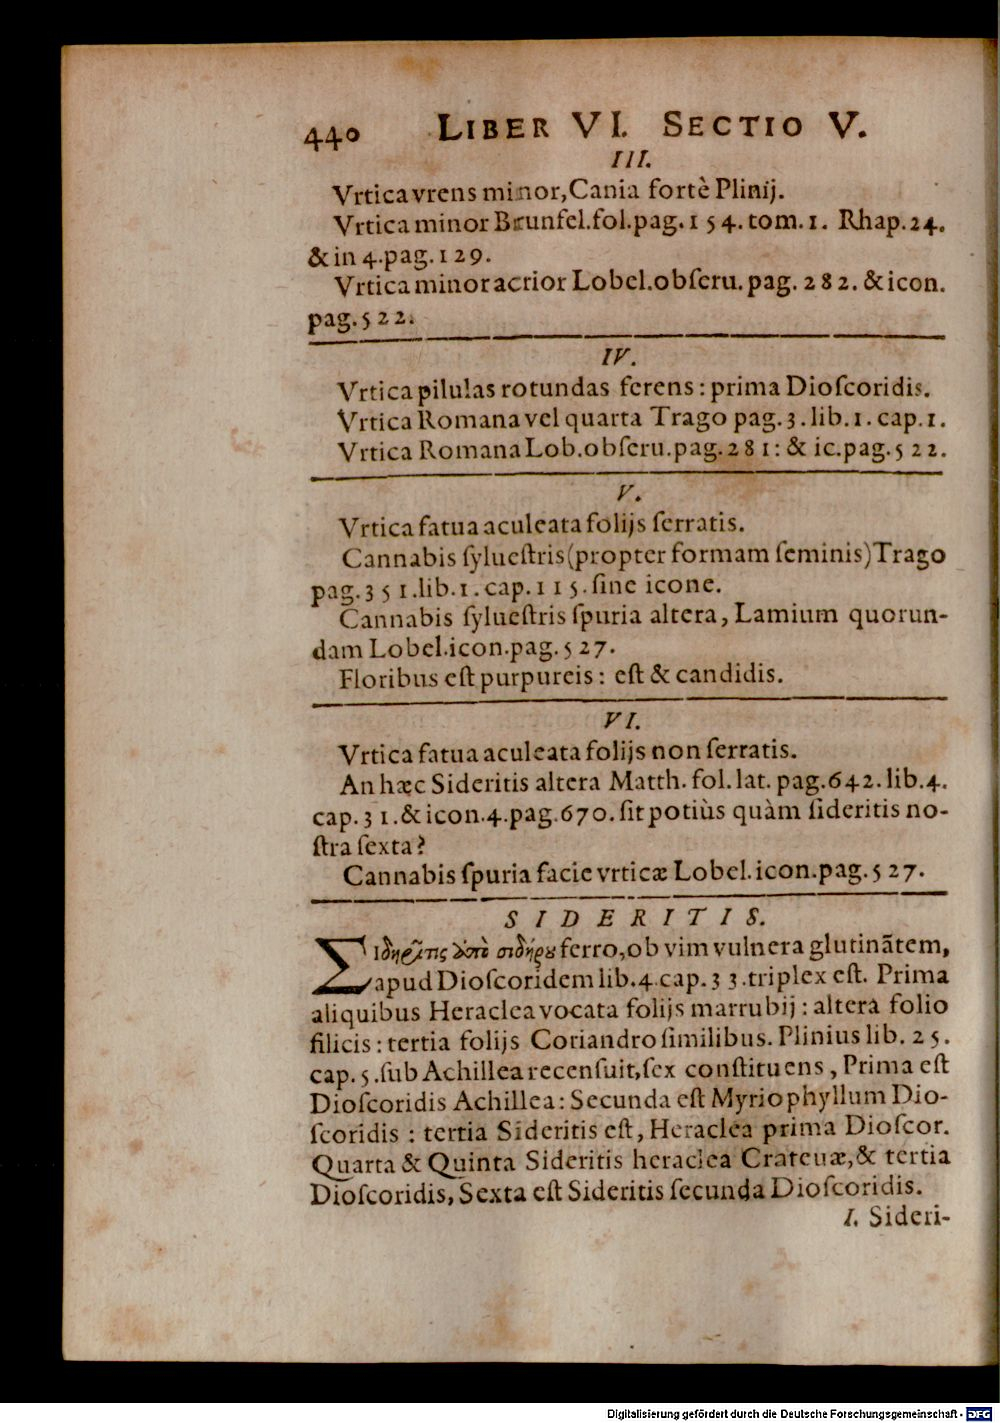 440 LIBER VI. SECTIO V.
III.
Vrtica vrens minor, Cania fortè Plinij.
Vrtica minor Brunfel. fol. pag. 154. tom. 1. Rhap. 24.
& in 4. pag. 129.
Vrtica minor acrior Lobel. obſeru. pag. 282. & icon.
pag. 522.
IV.
Vrtica pilulas rotundas ferens : prima Dioſcoridis.
Vrtica Romana vel quarta Trago pag. 3. lib. 1. cap. 1.
Vrtica Romana Lob. obſeru. pag. 281: & ic. pag. 522.
V.
Vrtica fatua aculeata folijs ſerratis.
Cannabis ſylueſtris (propter formam ſeminis) Trago
pag. 351. lib. 1. cap. 115. ſine icone.
Cannabis ſylueſtris ſpuria altera, Lamium quorun-
dam Lobel. icon. pag. 527.
Floribus eſt purpureis : eſt & candidis.
VI.
Vrtica fatua aculeata folijs non ſerratis.
An hæc Sideritis altera Matth. fol. lat. pag. 642. lib. 4.
cap. 31. & icon. 4. pag. 670. ſit potiùs quàm ſideritis no-
ſtra ſexta?
Cannabis ſpuria facie vrticæ Lobel. icon. pag. 527.
SIDERITIS.
Σιδηρῖτις ἀπὸ σιδήρου ferro, ob vim vulnera glutinãtem,
apud Dioſcoridem lib. 4. cap. 33. triplex eſt. Prima
aliquibus Heraclea vocata folijs marrubij : altera folio
filicis : tertia folijs Coriandro ſimilibus. Plinius lib. 25.
cap. 5. ſub Achillea recenſuit, ſex conſtituens, Prima eſt
Dioſcoridis Achillea: Secunda eſt Myriophyllum Dio-
ſcoridis : tertia Sideritis eſt, Heraclea prima Dioſcor.
Quarta & Quinta Sideritis heraclea Crateuæ, & tertia
Dioſcoridis, Sexta eſt Sideritis ſecunda Dioſcoridis.
I. Sideri-
Digitalisierung gefördert durch die Deutsche Forschungsgemeinschaft - DFG